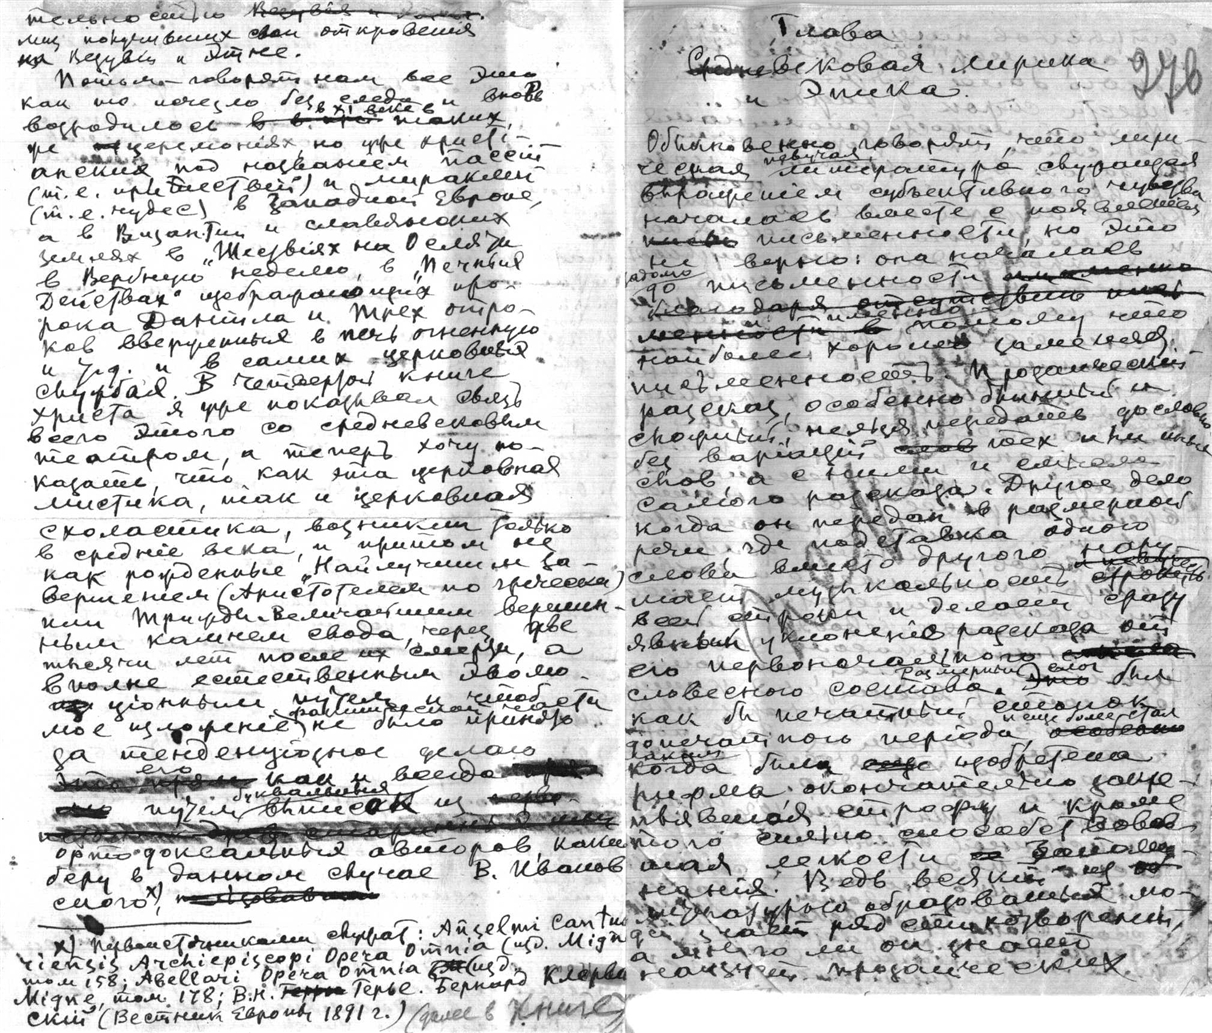 тельностью
лиц покупавших свои откровения
на Везувии и Этне.
Потом говорят нам все это
как то исчезло без следа и вновь
возродилось в XI веке в таких
же церемониях, но уже христi-
анских под названием пассiй
(т.е. пришествiй) и мираклей
(т.е. чудес) в Западной Европе,
а в Византiи и славянских
землях в „Шествiях на Осляти
в Вербную неделю, в „Печныя
Действах" изображающих про-
рока Данiила и трех отро-
ков вверженныя в печь огненную
и т.д. и в самих церковныя
службах. В четвертой книге
Христа я уже показывал связь
всего этого со средневековым
театром, а теперь хочу по-
казать, что как эта церковная
мистика, так и церковная
схоластика, возникли только
в среднiе века, и притом не
как рожденные „Наилучшим За-
вершением (Аристотелем по гречески)
или Трижды-Величайшим вершин-
ным камнем свода, через две
тысячи лет после их смерти, а
вполне естественным эволю-
цiонным путем и чтоб
мое изложенiе фактической части не было принято
за тенденцiозное делаю
его как и всегда
путем буквальныя выписок из
ортодоксальныя авторов, каки
беру в данном случае В. Иванов
ского x),
x) Первоисточниками служат: Anselmi Cantuo
riensis Archiepiscopi Opera Omnia (изд. Migne
том 158; Abellari Opera Omnia (изд.
Migne, том 178; В.Н. Герье. Бернард Клерво
скiй (Вестник Европы 1891 г.) (далее в Книге
Глава
Средневековая лирика
и Эпика.
276
Обыкновенно говорят, что лири
ческая певучая литература служащая
выраженiем субъективного чувства
началась вместе с появленiем
письменности, но это
не верно: она началась
задолго до письменности
именно потому что
наиболее хорошо заменяла
письменность. Прозаическiй
рассказ, особенно длинный и
сложный, нельзя передать дословно
без варiацiй всех или иных
слов а с ними и смысла
самого рассказа. Другое дело
когда он передан в размерной
речи, где подставка одного
слова вместо другого
музыкальность
всей строки и делает сразу
явным уклоненiе рассказа от
его первоначального
словесного состава. Размерный слог был
как бы печатный станок
допечатного перiода, и еще более стал
таким когда была изобретена
рифма окончательно закре-
плявшая строфу и кроме
того сильно способствовав
шая легкости запоми
нанiя. Ведь всякiй из
литературно образованныя мо-
жет знает ряд стихотворенiй,
а много ли он знает
наизусть прозаических